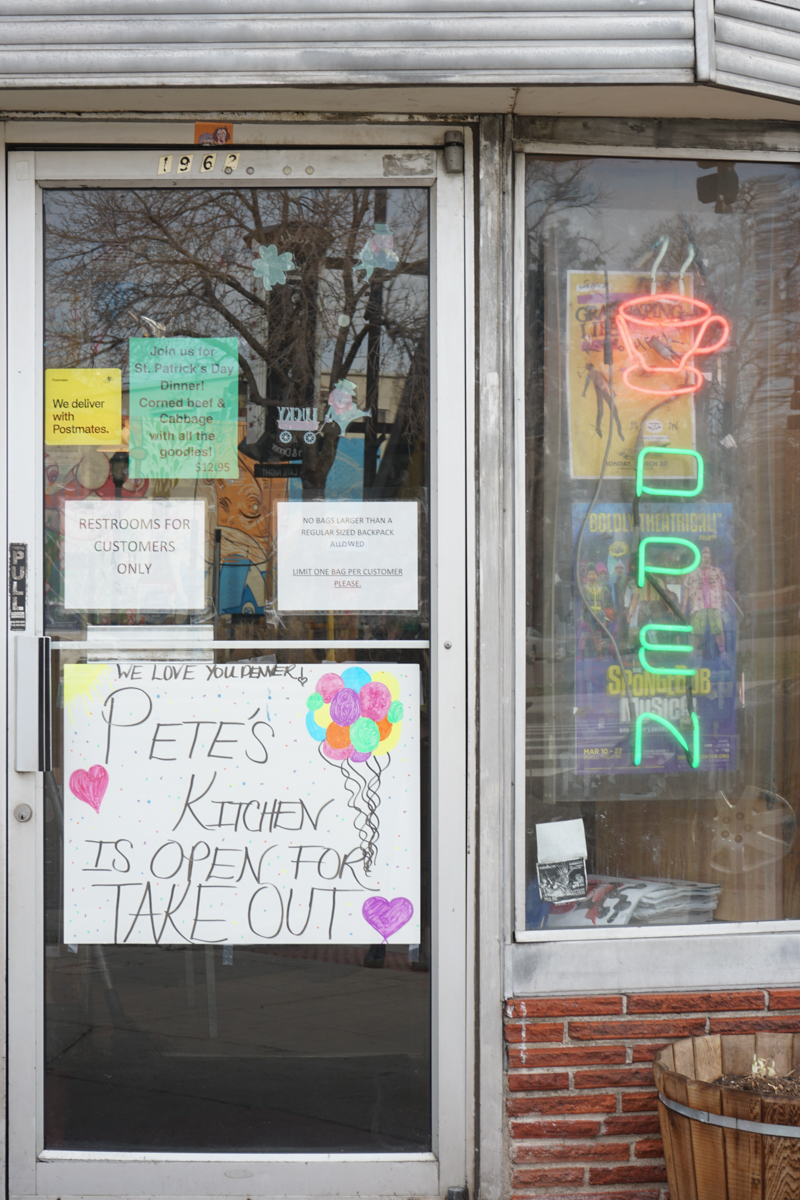 1962
Join us for
St. Patrick's Day
Dinner!
Corned beef &
Cabbage
with all the
goodies!
$12.95
Postmates
We deliver
with
Postmates.
LUCKY
RESTROOMS FOR
CUSTOMERS
ONLY
NO BAGS LARGER THAN A
REGULAR SIZED BACKPACK
ALLOWED
LIMIT ONE BAG PER CUSTOMER
PLEASE.
PULL
WE LOVE YOU DENVER!
PETE'S
KITCHEN
IS OPEN FOR
TAKE OUT
OPEN
THEATRICAL!
SPONGEBOB
MUSICAL
MAR 10 - 22